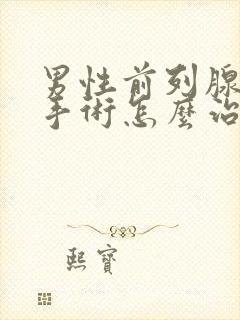 男性前列腺
手術怎麼治
熙寶